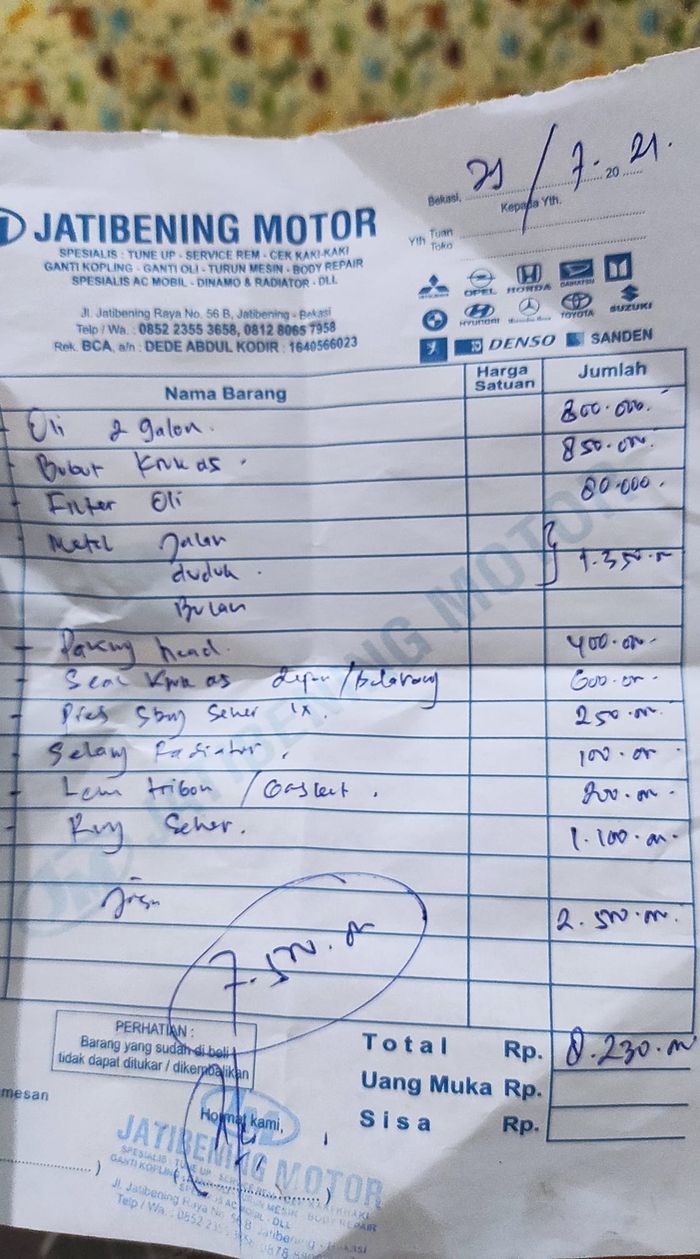 29 / 7 - 21.
Bekasi, ........ 20 ......
Kepada Yth.
Yth Tuan
Toko
JATIBENING MOTOR
SPESIALIS : TUNE UP - SERVICE REM - CEK KAKI-KAKI
GANTI KOPLING - GANTI OLI - TURUN MESIN - BODY REPAIR
SPESIALIS AC MOBIL - DINAMO & RADIATOR - DLL
Jl. Jatibening Raya No. 56 B, Jatibening - Bekasi
Telp / Wa. : 0852 2355 3658, 0812 8065 7958
Rek. BCA, a/n : DEDE ABDUL KODIR : 1640566023
OPEL HONDA DAIHATSU
HYUNDAI TOYOTA SUZUKI
DENSO SANDEN
Nama Barang Harga Satuan Jumlah
- Oli 2 galon. 800.000.
- Bubut Kruk as. 850.000.
- Filter Oli 80.000.
- Metal Jalan
duduk. 1.350.000
Bulan
- Paking head. 400.000-
- Seal Kruk as depan/Belakang 600.000-
- Pres Sbuy Seher 1x. 250.000-
- Selang Radiator. 100.000
- Lem tribon / Gasket. 200.000-
- Ring Seher. 1.100.000-
Jasa 2.500.000.
7.500.000
PERHATIAN :
Barang yang sudah di beli
tidak dapat ditukar / dikembalikan
Total Rp. 8.230.000
Uang Muka Rp.
Sisa Rp.
mesan
Hormat kami,
JATIBENING MOTOR